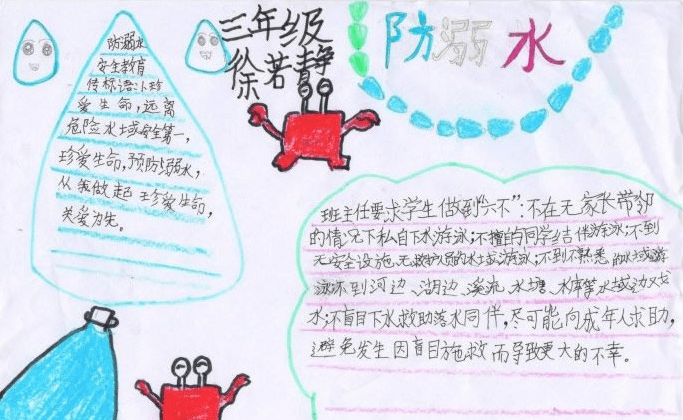 三年级
徐若静
防溺水
防溺水
安全教育
传标语:1、珍
爱生命,远离
危险水域安全第一,
珍爱生命,预防溺水,
从我做起 珍爱生命,
关爱为先。
班主任要求学生做到“六不”:不在无家长带领
的情况下私自下水游泳;不擅自同学结伴游泳;不到
无安全设施、无救护员的水域游泳;不到不熟悉的水域游
泳不到河边、湖边、溪流、水塘、水库等水域边戏
水;不盲目下水救助落水同伴,尽可能向成年人求助,
避免发生因盲目施救而导致更大的不幸。